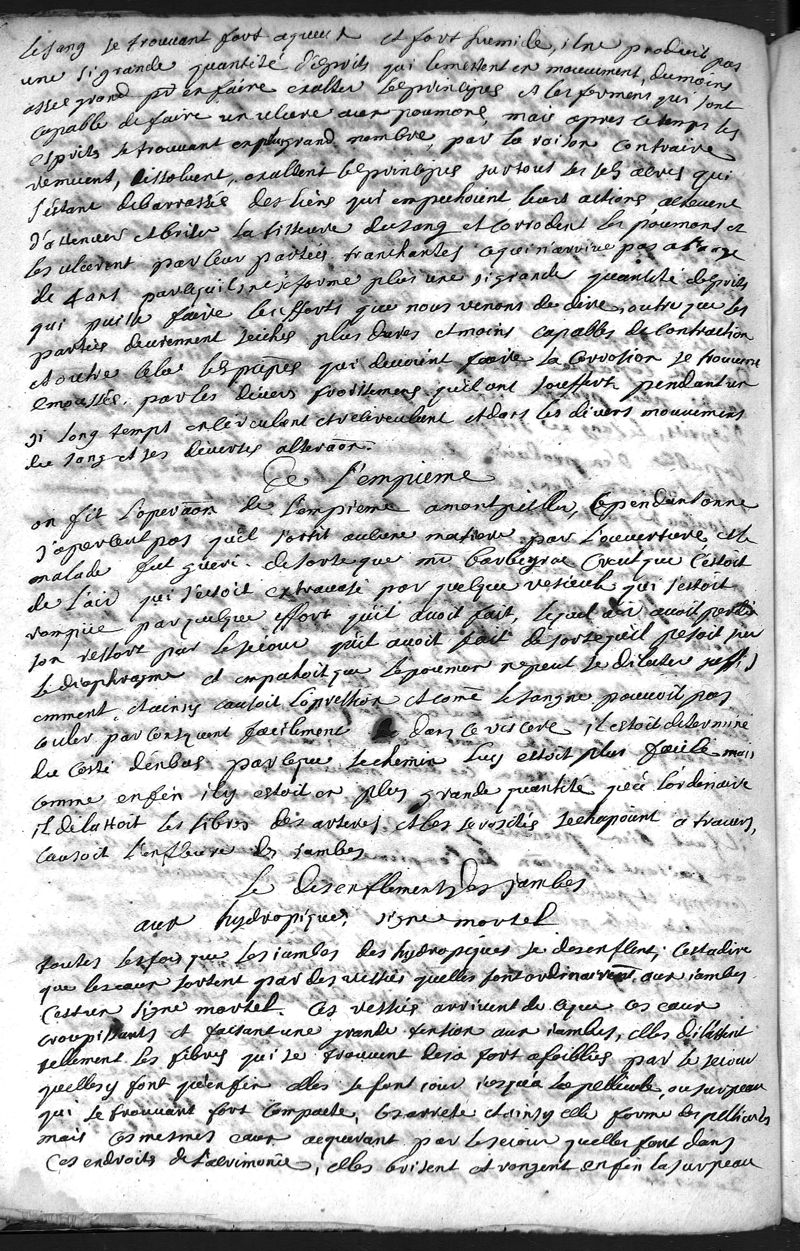 le sang se trouvant fort aqueux et fort humide, il ne produit pas
une si grande quantité d'esprits qui le mettent en mouvement, du moins
assez grand pr en faire exalter les principes et les fermens qui sont
capable de faire un ulcere aux poumons, mais apres ce temps les
esprits se trouvant en plus grand nombre, par la raison contraire
remuent, dissolvent, exaltent les principes surtout les sels acres qui
s'estant debarrassés des liens qui empechoient leurs actions achevent
d'attenuer et briser la tisseure du sang et corrodent les poumons et
les ulcerent par leur parties tranchantes ce qui n'arrive pas a l'aage
de 4 ans parce qu'il ne s'y forme plus une si grande quantité desprits
qui puisse faire les efforts que nous venons de dire, outre que les
parties deviennent seiches plus dures et moins capables de contraction
et outre cela les pñpes qui devoient faire la corrosion se trouvent
emoussés par les divers frottemens qu'ils ont souffert pendant un
si long temps en circulant et recirculant et dans les divers mouvemens
du sang et ses diverses alteraõn.
De L'empieme
on fit l'operaõn de l'empieme a montpellier, cependant on ne
s'aperceut pas qu'il sortit aucune matiere par l'ouverture et le
malade fut gueri. de sorte que mr barbeyrac creut que c'estoit
de l'air qui s'estoit extravasé par quelque vesicule qui s'estoit
rompüe par quelque effort qu'il avoit fait, lequel air avoit perdu
son ressort par le sejour qu'il avoit fait de sorte qu'il pesoit sur
le diaphragme et empechoit que le poumon ne peut se dilater suffis
emment, et ainsy causoit l'opression et comẽ le sang ne pouvoit pas
couler par consequent facilement dans ce viscere il estoit determiné
du costé d'enbas parceque le chemin luy estoit plus facile mais
comme enfin il y estoit en plus grande quantité qu'a l'ordinaire
il dilattoit les fibres des arteres et les serosités sechapoint a travers,
causoit l'enfleure des jambes
Le desenflement des jambes
aux hydropiques, signe mortel
toutes les fois que les jambes des hydropiques se desenflent, c'estadire
que les eaux sortent par des vessies quelles font ordinairemt. aux jambes
c'est un signe mortel. Ces vessies arrivent de ce que ces eaux
croupissants et faisant une grande tension aux jambes, elles dilattent
tellement les fibres qui se trouvent deja fort afoiblies par le sejour
quelles y font qu'enfin elles se font jour jusqu'a la pellicule, ou surpeau
qui se trouvant fort compacte, les arrete et ainsy elle forme les pellicules
mais ces mesmes eaux acquerant par le sejour quelles font dans
ces endroits de l'acrimonie, elles brisent et rongent enfin la surpeau